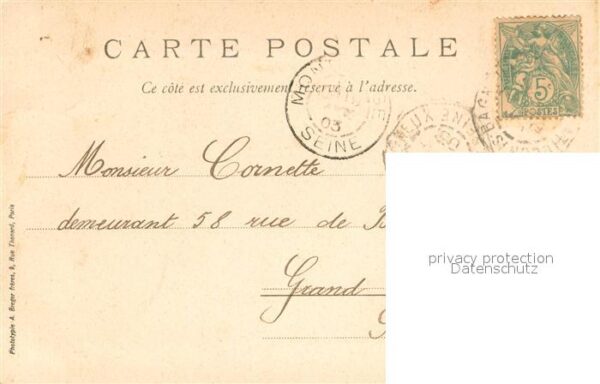 CARTE POSTALE
Ce côté est exclusivement réservé à l'adresse.
5c
POSTES
SEINE
03
Monsieur Cornette
demeurant 58 rue de
Grand
privacy protection
Datenschutz
Phototypie A. Breger frères, 9, Rue Thénard, Paris